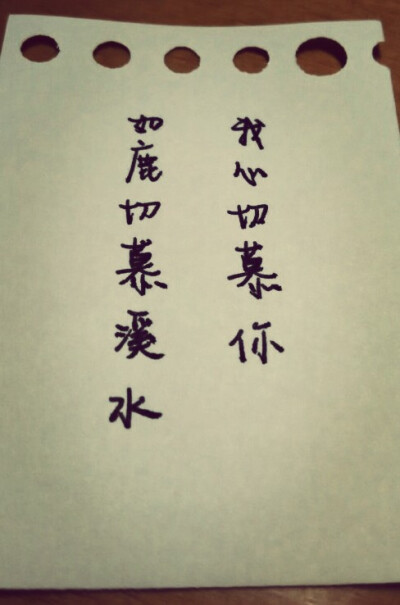 我心切慕你
如鹿切慕溪水